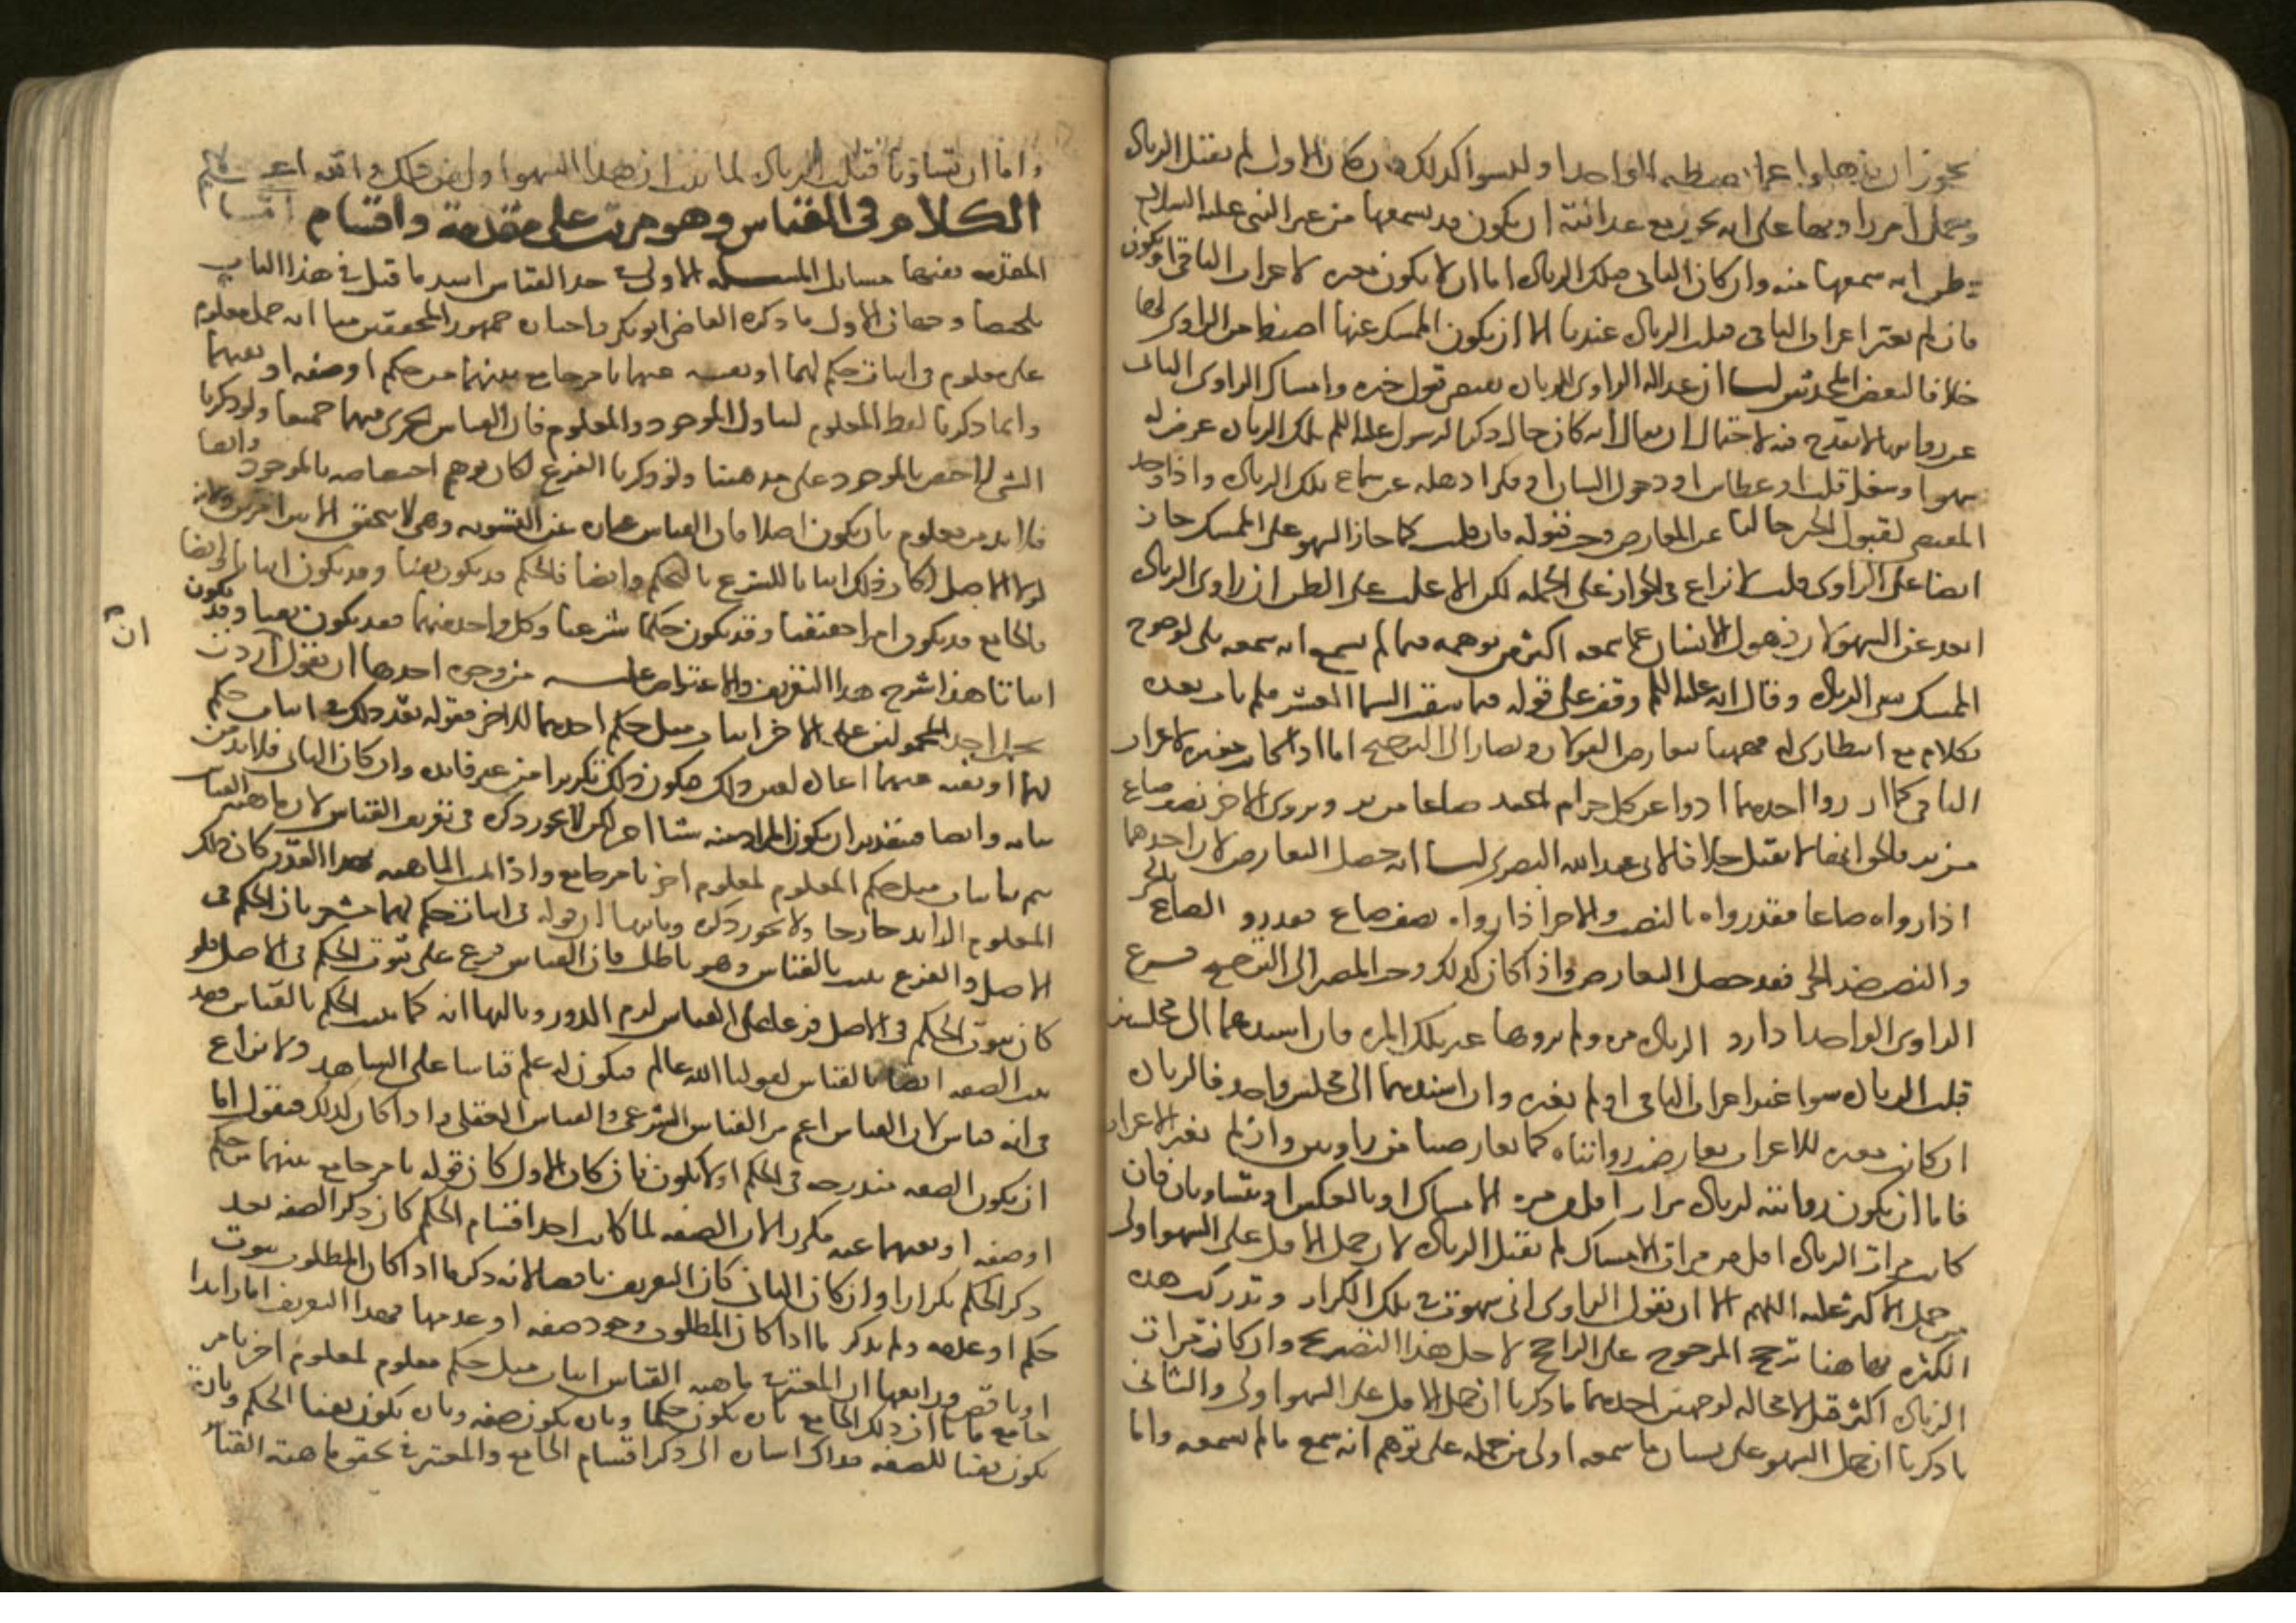 يجوز ان يذهلوا عما ضبطه الواحد او ليسوا كذلك فان كان الاول لم تقبل الزيادة
وحمل امر راويها على انه يجوز مع عدالته ان يكون قد سمعها من غير النبي عليه السلام
وظن انه سمعها منه وان كان الثاني فتلك الزيادة اما ان لا يكون مغيره لاعراب الباقي او يكون
فان لم تغير اعراب الباقي قبلت الزيادة عندنا الا ان يكون الممسك عنها اضبط من الراوي لها
خلافا لبعض المحدثين لنا ان عدالة الراوي للزيادة تقتضي قبول خبره وامساك الراوي الثاني
عن روايتها لا يقدح فيه لاحتمال ان يقال انه كان حال ذكر الرسول عليه السلم تلك الزيادة عرض له
سهو او شغل قلب او عطاس او دخول انسان او فكر اذهله عن سماع تلك الزيادة واذا وجد
المقتضي لقبول الخبر خاليا عن المعارض وجب قبوله فان قلت كما جاز السهو على الممسك جاز
ايضا على الراوي قلت لا نزاع في الجواز على الجمله لكن الاغلب على الظن ان راوي الزيادة
ابعد عن السهو لان ذهول الانسان عما سمعه اكثر من توهمه فيما لم يسمع انه سمعه بلى لو صرح
الممسك بنفي الزيادة وقال انه عليه السلم وقف على قوله فيما سقت السما العشر فلم يات بعده
بكلام مع انتظاري له فههنا يتعارض القولان ويصار الى الترجيح اما اذا كانت مغيره لاعراب
الباقي كما اذا روى احدهما ادوا عن كل حر او عبد صاعا من بر ويروي الاخر نصف صاع
من بر فالحق انها لا تقبل خلافا لابي عبد الله البصري لنا انه حصل التعارض لان احدهما
اذا رواه صاعا فقد رواه بالنصب والاخر اذا رواه نصف صاع فقد روى الصاع بالجر
والنصب ضد الجر فقد حصل التعارض واذا كان كذلك وجب المصير الى الترجيح فرع
الراوي الواحد اذا روى الزيادة مره ولم يروها غير تلك المره فان اسندهما الى مجلسين
قبلت الزيادة سوا غيرت اعراب الباقي او لم تغيره وان اسندهما الى مجلس واحد فالزيادة
ان كانت مغيره للاعراب تعارضت روايتاه كما تعارضتا من راويين وان لم تغير الاعراب
فاما ان يكون روايته للزيادة مرات اقل من مره الامساك او بالعكس او يتساويان فان
كانت مرات الزيادة اقل من مرات الامساك لم تقبل الزيادة لان حمل الاقل على السهو اولى
من حمل الاكثر عليه اللهم الا ان يقول الراوي اني سهوت في تلك الكرات وتذكرت هذه
الكره فهاهنا ترجح المرجوح على الراجح لاجل هذا التصريح وان كانت مرات
الزيادة اكثر قبل لا محاله لوجهين احدهما ما ذكرنا ان حمل الاقل على السهو اولى والثاني
ما ذكرنا ان حمل السهو على نسيان ما سمعه اولى من حمله على توهم انه سمع ما لم يسمعه واما
واما ان تساويا قبلت الزيادة لما بينا ان هذا السهو اولى من ذلك والله اعلم
الكلام في القياس وهو مرتب على مقدمة واقسام
المقدمه ففيها مسايل المسله الاولى في حد القياس اسد ما قيل في هذا الباب
تلخيصا وجهان الاول ما ذكره القاضي ابو بكر واختاره جمهور المحققين منا انه حمل معلوم
على معلوم في اثبات حكم لهما او نفيه عنهما بامر جامع بينهما من حكم او صفه او نفيهما
وانما ذكرنا لفظ المعلوم ليتناول الموجود والمعدوم فان القياس يجري فيهما جميعا ولو ذكرنا
الشي لاختص بالموجود على مذهبنا ولو ذكرنا الفرع لكان يوهم اختصاصه بالموجود وايضا
فلا بد من معلوم بان يكون اصلا فان القياس عباره عن التسويه وهي لا تتحقق الا بين امرين ولانه
لولا الاصل لكان ذلك اثباتا للشرع بالتحكم وايضا فالحكم قد يكون نفيا وقد يكون اثباتا وايضا
فالجامع قد يكون امرا حقيقيا وقد يكون حكما شرعيا وكل واحد منهما فقد يكون نفيا وقد يكون
اثباتا هذا شرح هذا التعريف والاعتراض عليه من وجوه احدها ان نقول اردت
ان
بحمل احد المعلومين على الاخر اثبات مثل حكم احدهما للاخر فقوله بعد ذلك في اثبات حكم
لهما او نفيه عنهما اعاده لعين ذلك فيكون ذلك تكريرا من غير فايده وان كان الثاني فلا بد من
بيانه وايضا فبتقدير ان يكون المراد منه شيا اخر لكن لا يجوز ذكره في تعريف القياس لان ماهيه القياس
تتم باثبات مثل حكم المعلوم لمعلوم اخر بامر جامع واذا تمت الماهيه بهذا القدر كان ذلك
المعلوم الزايد خارجا ولا يجوز ذكره وثانيها ان قوله في اثبات حكم لهما مشعر بان الحكم في
الاصل والفرع يثبت بالقياس وهو باطل فان القياس فرع على ثبوت الحكم في الاصل فلو
كان ثبوت الحكم في الاصل فرعا على القياس لزم الدور وثالثها انه كما يثبت الحكم بالقياس فقد
يثبت الصفه ايضا بالقياس لقولنا الله عالم فيكون له علم قياسا على الشاهد ولا نزاع
في انه قياس لان القياس اعم من القياس الشرعي والقياس العقلي واذا كان كذلك فنقول اما
ان يكون الصفه مندرجه في الحكم او لا يكون فان كان الاول كان قوله بامر جامع بينهما من حكم
او صفه او نفيهما عنه مكررا لان الصفه لما كانت احد اقسام الحكم كان ذكر الصفه بعد
ذكر الحكم تكرارا وان كان الثاني كان التعريف ناقصا لانه ذكر ما اذا كان المطلوب ثبوت
حكم او عدمه ولم يذكر ما اذا كان المطلوب وجود صفه او عدمها فهذا التعريف اما زايدا
او ناقص ورابعها ان المعتبر في ماهيه القياس اثبات مثل حكم معلوم لمعلوم اخر بامر
جامع فاما ان ذلك الجامع تاره يكون حكما وتاره يكون صفه وتاره يكون نفيا الحكم وتارة
يكون نفيا للصفه فذاك اشاره الى ذكر اقسام الجامع والمعتبر في تحقق ماهية القياس